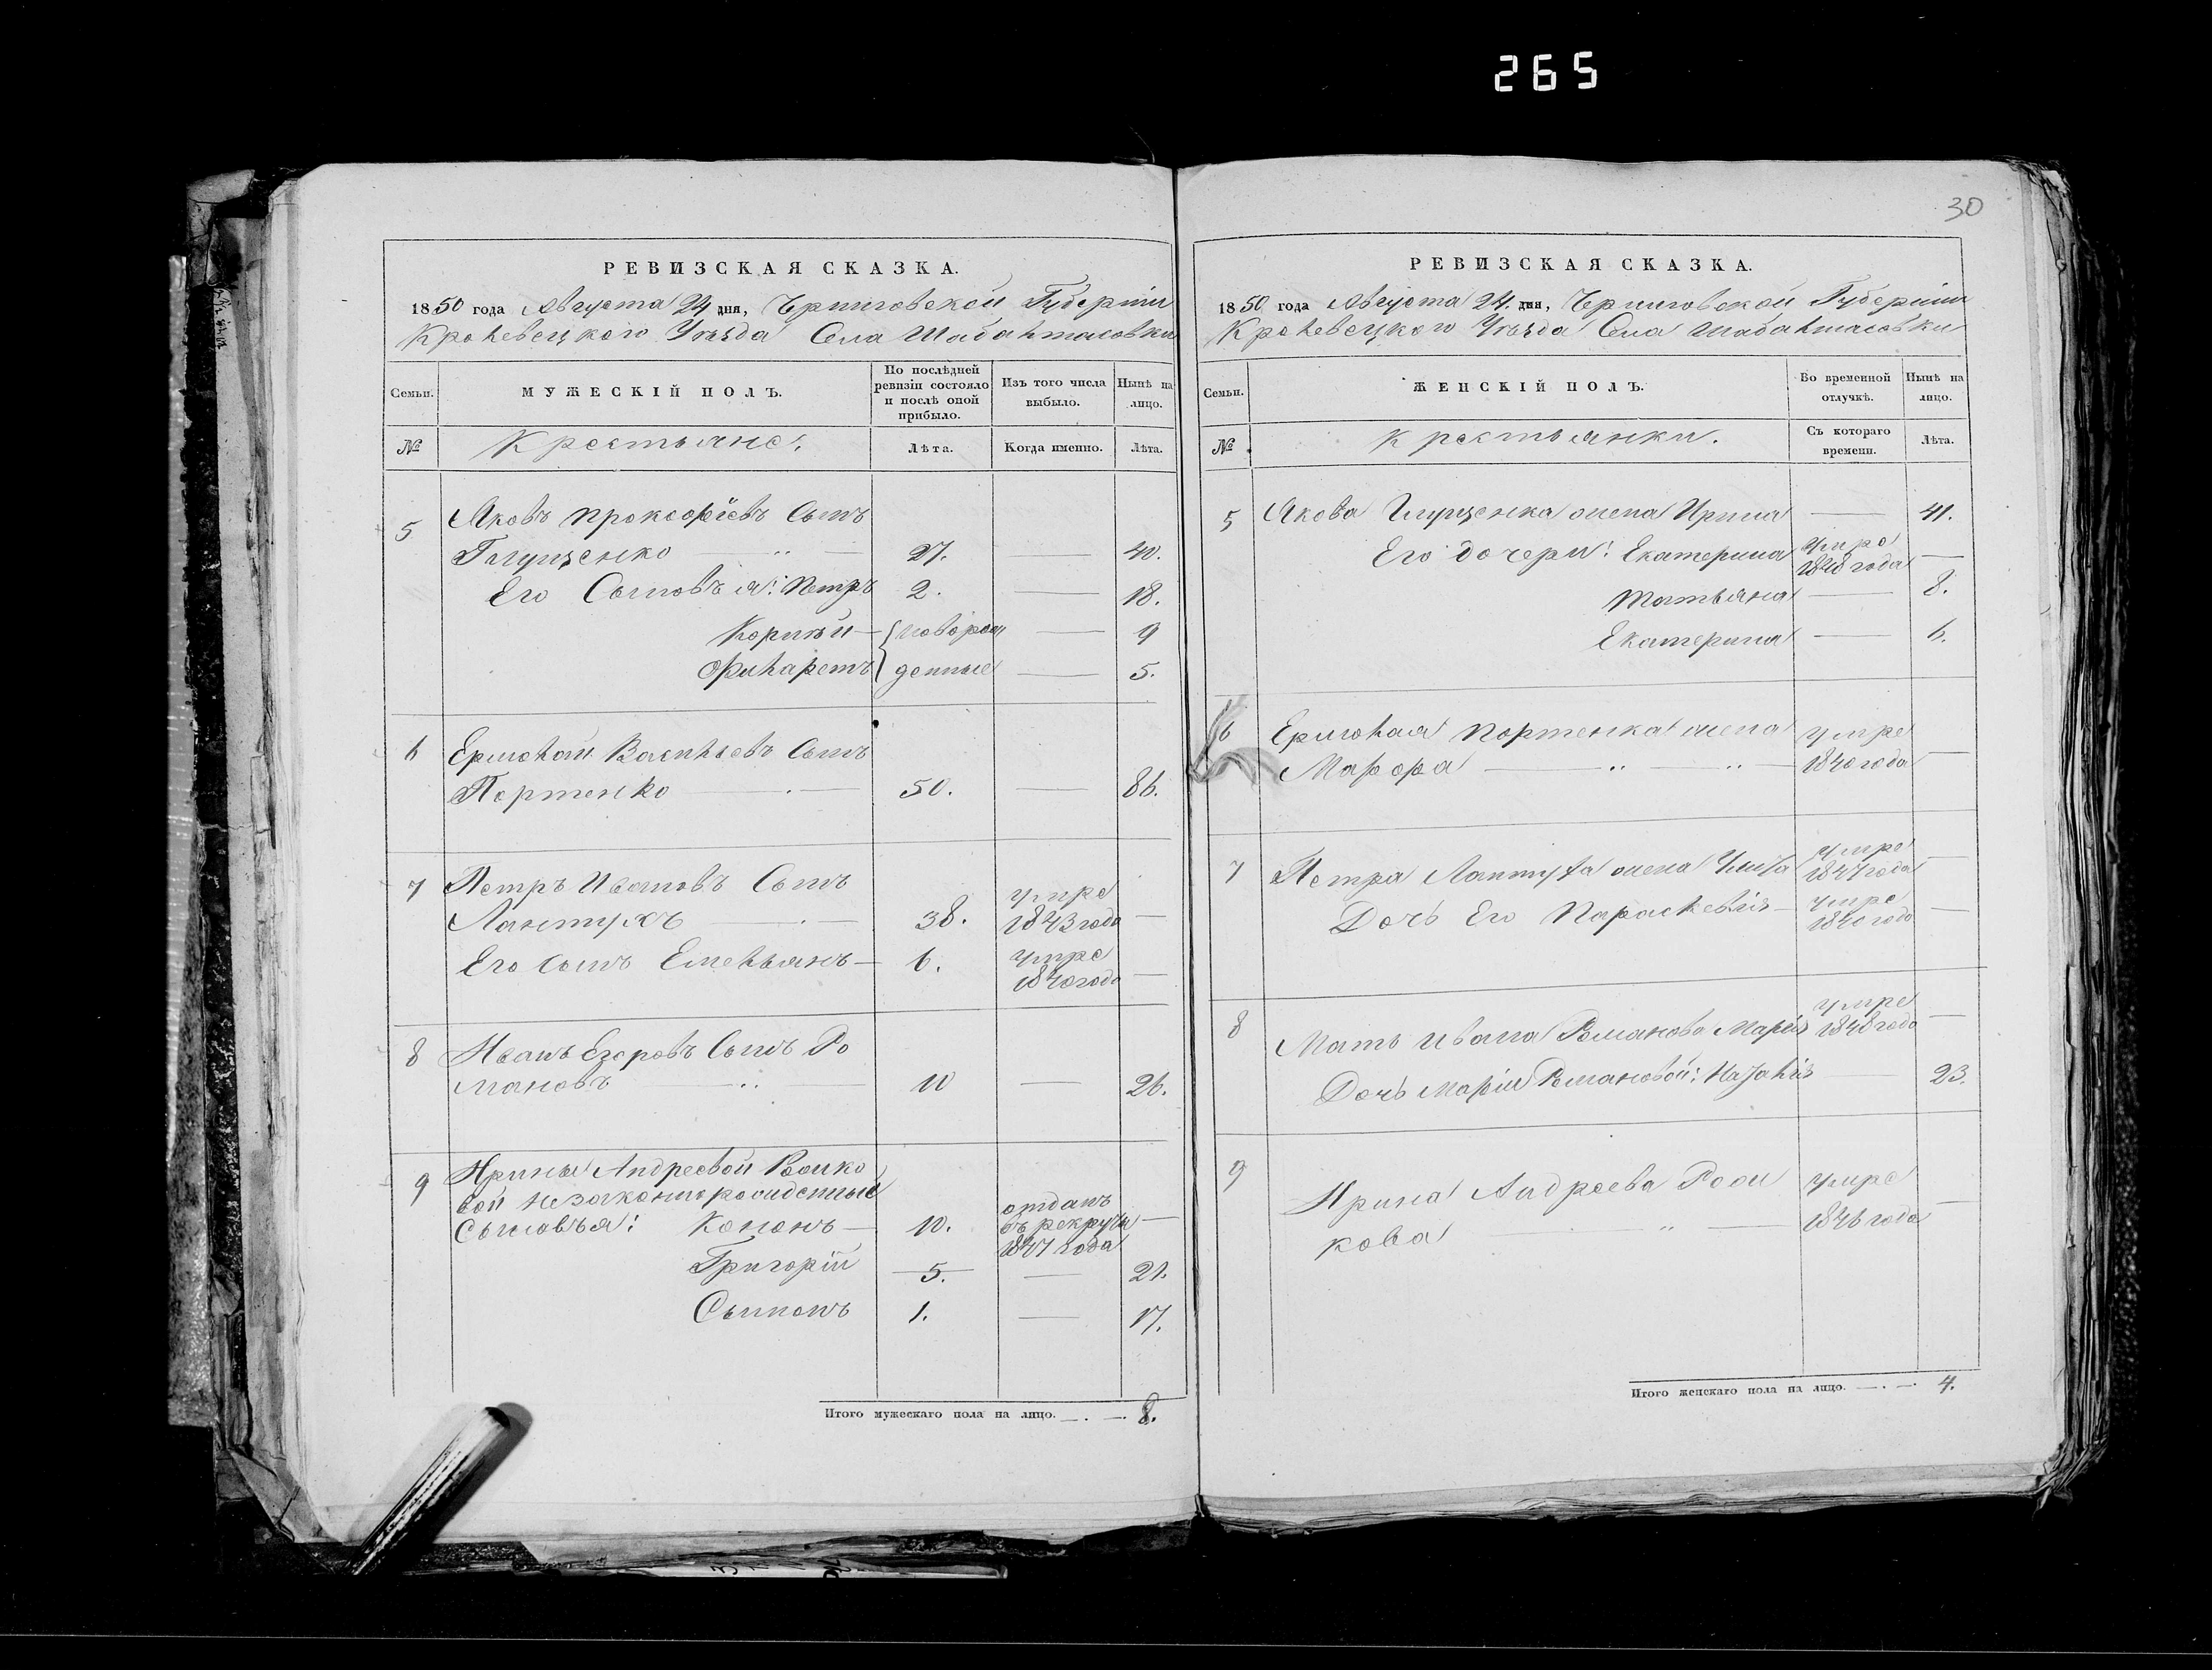 265
30
РЕВИЗСКАЯ СКАЗКА.
1850 года Августа 24 дня, Черниговской Губерніи
Кролевецкаго Уѣзда Села Шабалтасовки
Семьи.
МУЖЕСКІЙ ПОЛЪ.
По послѣдней ревизіи состояло и послѣ оной прибыло.
Изъ того числа выбыло.
Нынѣ на лицо.
№
Крестьяне.
Лѣта.
Когда именно.
Лѣта.
5 Яковъ Прокофіевъ Сынъ
Глущенко 27. — 40.
Его Сыновья: Петръ 2. — 18.
Корній — { новорож — 9
Филаретъ { денные — 5.
6 Ермолай Васильевъ Сынъ
Портенко 50. — 86.
7 Петръ Ивановъ Сынъ
Лантухъ 38. умре 1843 года —
Его сынъ Емельянъ — 6. умре 1840 года —
8 Иванъ Егоровъ Сынъ Ро
мановъ 10 — 26.
9 Ирины Андреевой
вой незаконнорожденные
Сыновья: Кононъ — 10. отданъ въ рекруты 1847 года —
Григорій 5. — 21.
Сымонъ 1. — 17.
Итого мужескаго пола на лицо. — . — 8.
РЕВИЗСКАЯ СКАЗКА.
1850 года Августа 24 дня, Черниговской Губерніи
Кролевецкаго Уѣзда Села Шабалтасовки
Семьи.
ЖЕНСКІЙ ПОЛЪ.
Во временной отлучкѣ.
Нынѣ на лицо.
№
Крестьянки.
Съ котораго времени.
Лѣта.
5 Якова Глущенка жена Ирина — 41.
Его дочери: Екатерина умре 1848 года —
Татьяна — 8.
Екатерина — 6.
6 Ермолая Портенка жена умре
Марфа — 1840 года —
7 Петра Лантуха жена умре 1847 года —
Дочь Его Параскевія — умре 1840 года —
8 Мать Ивана Романова Марія умре 1848 года —
Дочь Маріи Романовой: Наталія — 23.
9 Ирина Андреева умре
кова — 1846 года —
Итого женскаго пола на лицо. — . — 4.